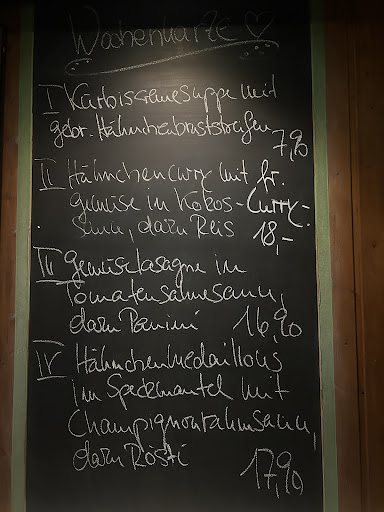 Wochenkarte ♡
I Kürbiscremesuppe mit
gebr. Hähnchenbruststreifen
7,90
II Hähnchencurry mit fr.
gemüse in Kokos-Curry-
sauce, dazu Reis 18,-
III gemüselasagne in
Tomatensahnesauce,
dazu Panini 16,90
IV Hähnchenmedaillons
im Speckmantel mit
Champignonrahmsauce,
dazu Rösti
17,90